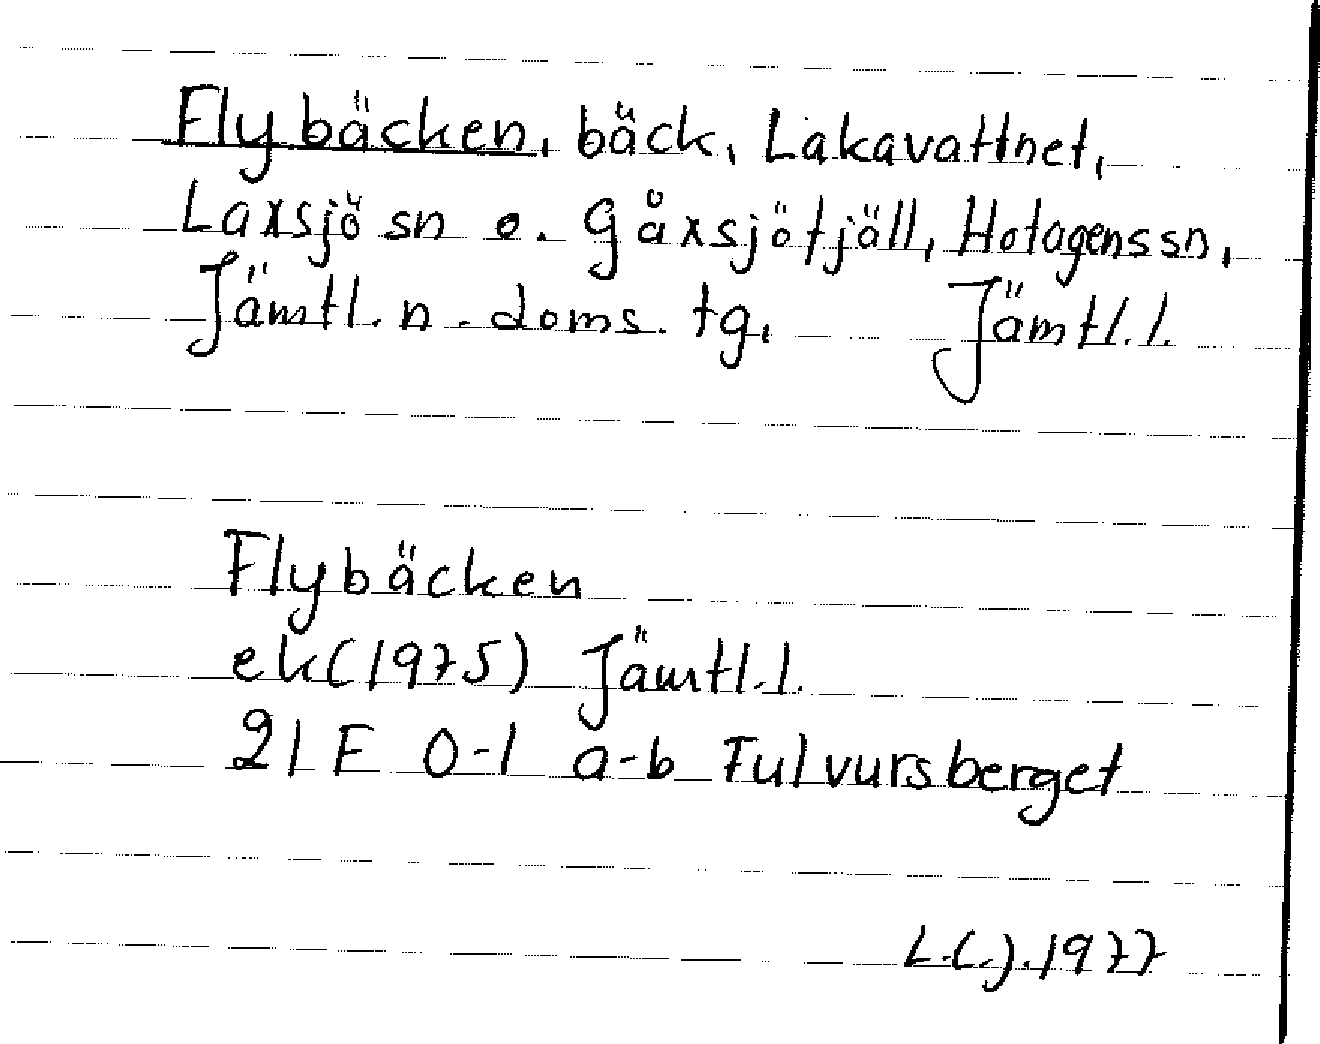 Flybäcken, bäck, Lakavattnet,
Laxsjö sn o. Gåxsjöfjäll, Hotagens sn,
Jämtl. n. doms. tg, Jämtl. l.
Flybäcken
ek (1975) Jämtl. l.
21 E 0-1 a-b Fulvursberget
L.(.).1977